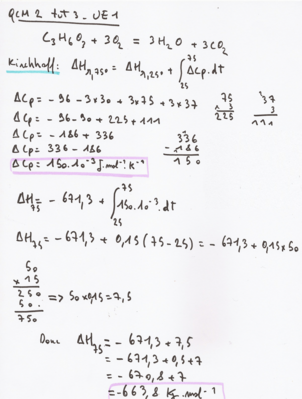 QCM 2 tut 3 - UE 1
C₃H₆O₃ + 3O₂ = 3H₂O + 3CO₂
Kirchhoff: ΔHr,75° = ΔHr,25° + ∫₂₅⁷⁵ ΔCp.dt
ΔCp = - 96 - 3×30 + 3×75 + 3×37
75
× 3
225
37
3
111
ΔCp = - 96 - 90 + 225 + 111
ΔCp = - 186 + 336
ΔCp = 336 - 186
336
- 186
150
ΔCp = 150.10⁻³ J.mol⁻¹ K⁻¹
ΔH₇₅ = - 671,3 + ∫₂₅⁷⁵ 150.10⁻³.dt
ΔH₇₅ = - 671,3 + 0,15 (75-25) = - 671,3 + 0,15×50
50
× 15
250
50.
750
=> 50×0,15 = 7,5
Donc ΔH₇₅ = - 671,3 + 7,5
= - 671,3 + 0,5 + 7
= - 670,8 + 7
= - 663,8 KJ.mol⁻¹